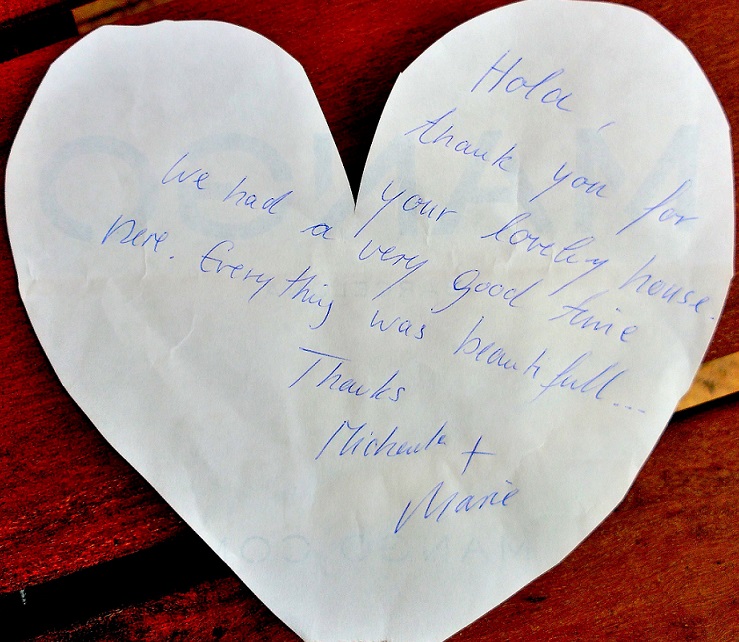 Hola,
thank you for
your lovely house.
We had a very good time
here. Everything was beautifull...
Thanks
+
Marie
MANGO
MANGO.COM